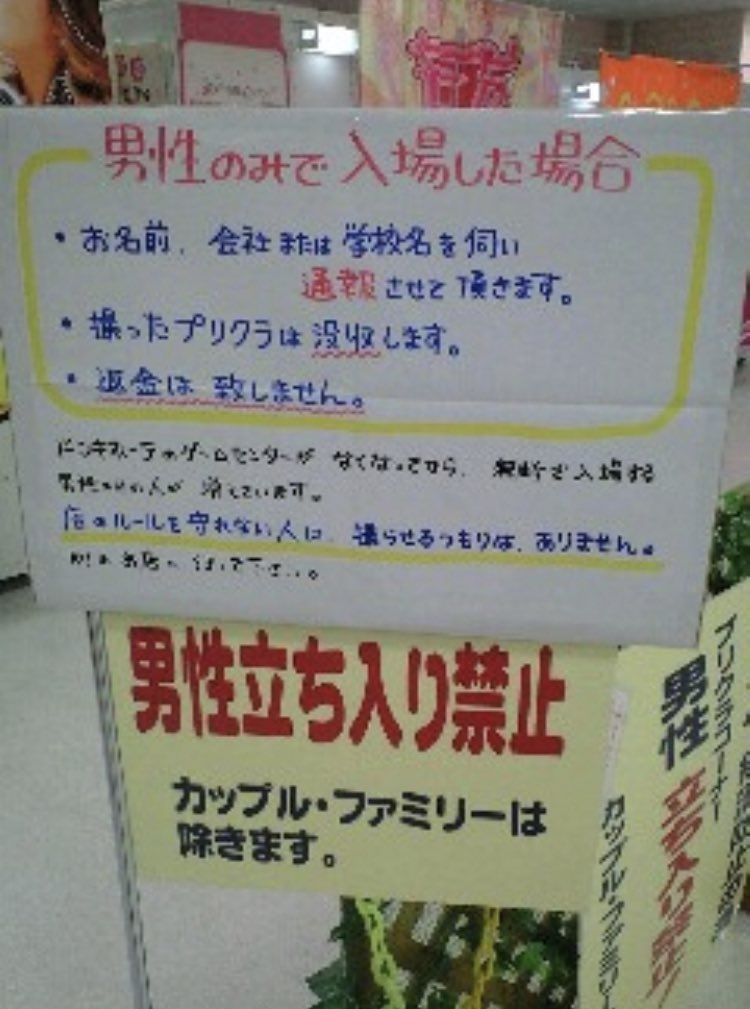 男性のみで入場した場合
・お名前、会社または学校名を伺い
通報させて頂きます。
・撮ったプリクラは没収します。
・返金は致しません。
ドンキホーテのゲームセンターが なくなってから、無断で入場する
男性のみの人が 増えています。
店のルールを守れない人は、撮らせるつもりは、ありません。
男性立ち入り禁止
カップル・ファミリーは
除きます。
プリクラコーナー
男性立ち入り禁止!
カップル・ファミリー